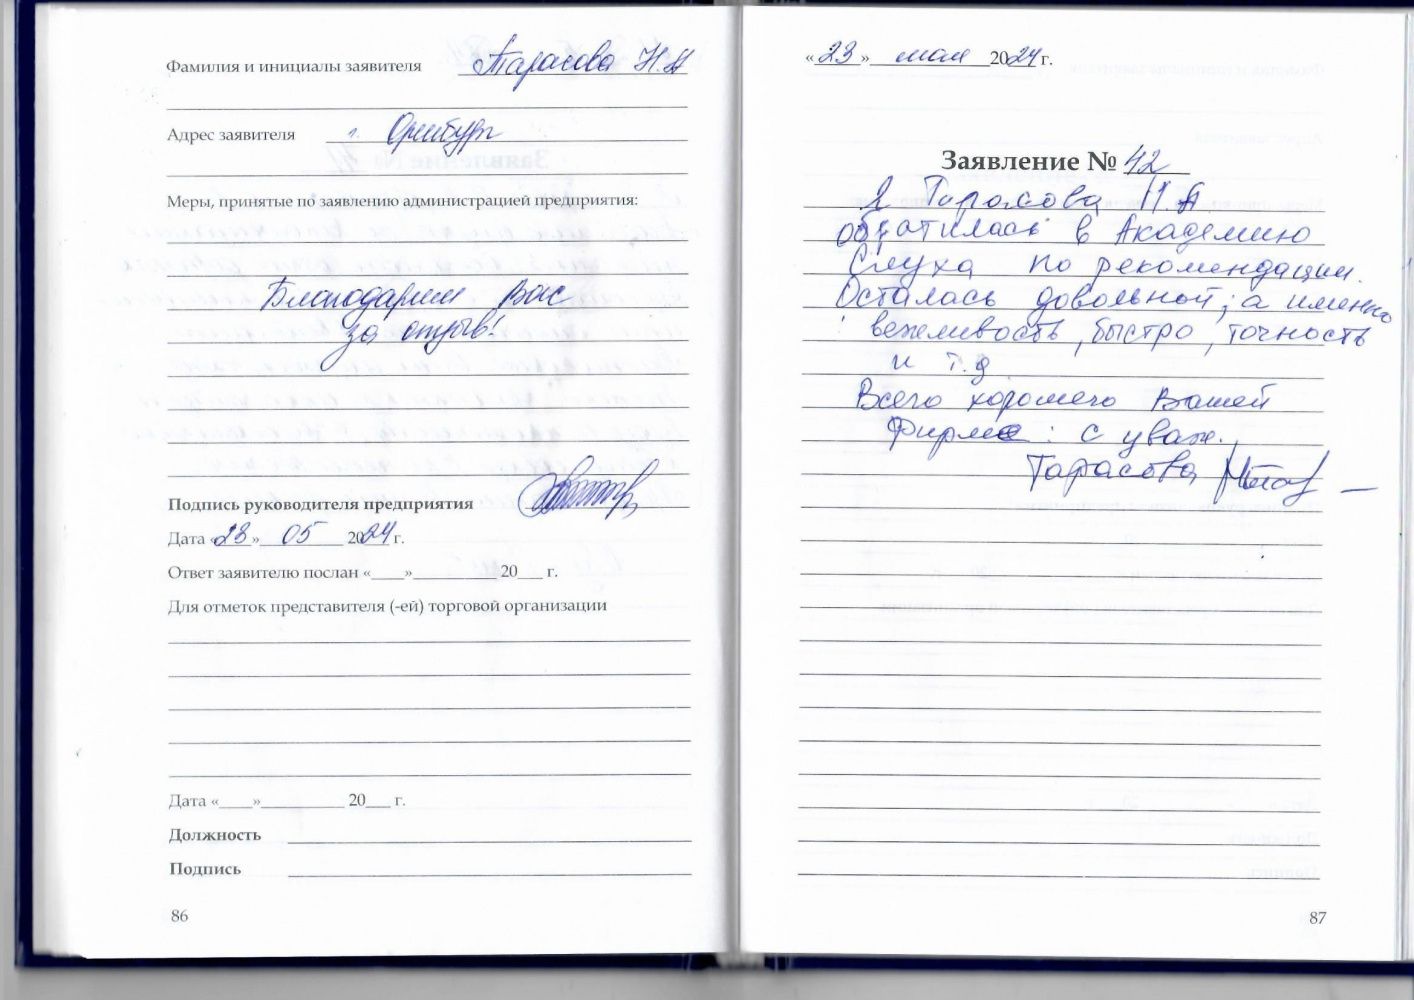 Фамилия и инициалы заявителя Тарасова Н.А
Адрес заявителя г. Оренбург
Меры, принятые по заявлению администрацией предприятия:
Благодарим Вас
за отзыв!
Подпись руководителя предприятия
Дата «23» 05 2024 г.
Ответ заявителю послан «____»__________20___ г.
Для отметок представителя (-ей) торговой организации
Дата «____»__________ 20___ г.
Должность
Подпись
86
«23» мая 2024 г.
Заявление № 42
Я Тарасова Н.А
обратилась в Академию
Слуха по рекомендации.
Осталась довольной; а именно
: вежливость, быстро, точность
и т.д
Всего хорошего Вашей
Фирме: с уваж.,
Тарасова
87